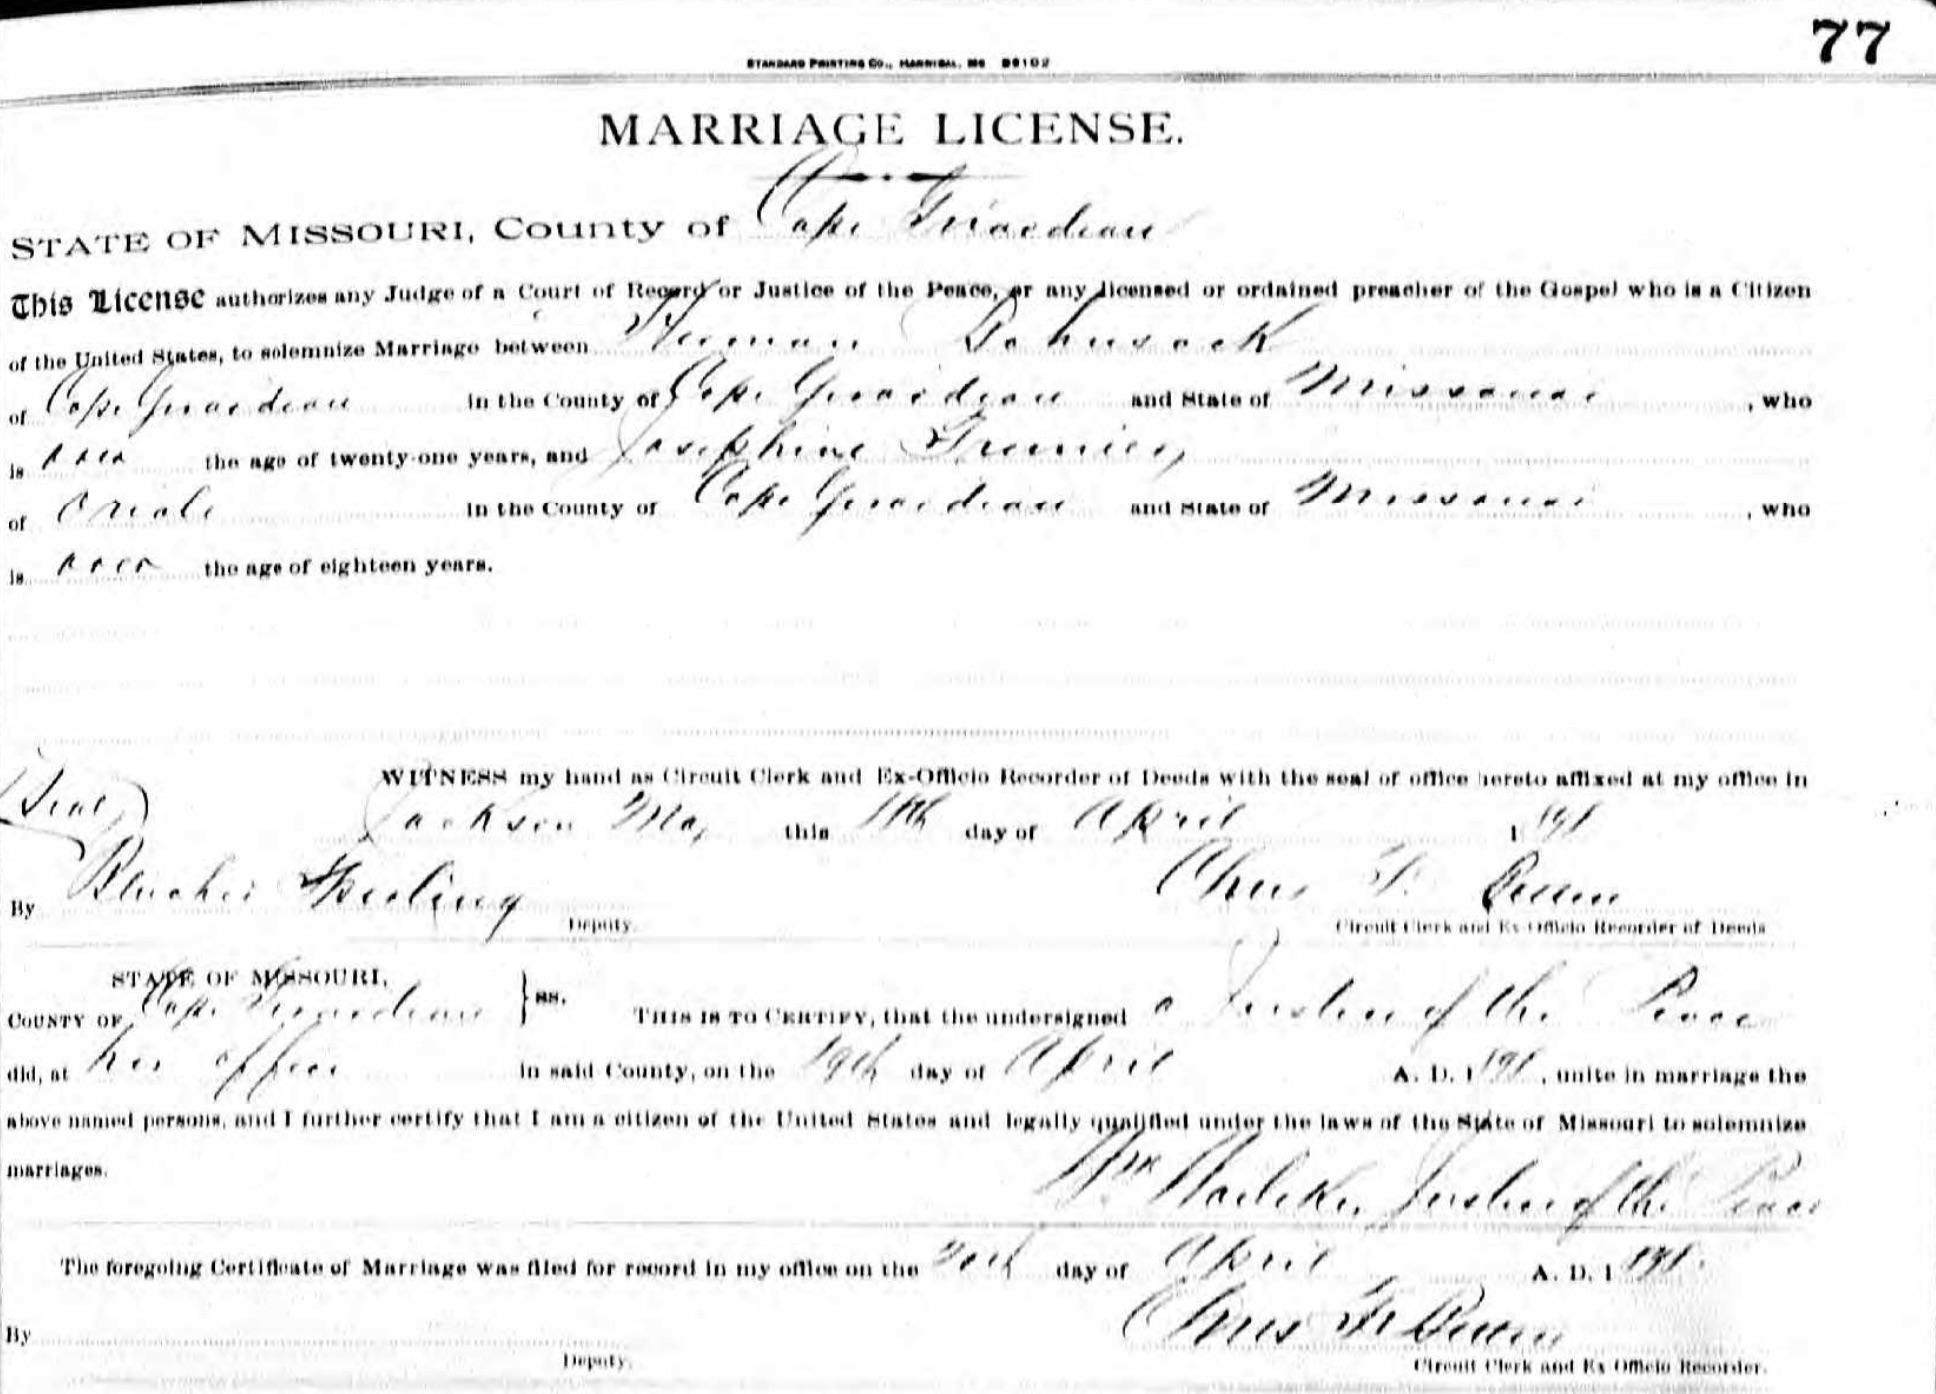 77
STANDARD PRINTING CO., HANNIBAL, MO
MARRIAGE LICENSE.
STATE OF MISSOURI, County of Cape Girardeau
This License authorizes any Judge of a Court of Record or Justice of the Peace, or any licensed or ordained preacher of the Gospel who is a Citizen
of the United States, to solemnize Marriage between Herman Bohnsack
of Cape Girardeau in the County of Cape Girardeau and State of Missouri, who
is over the age of twenty-one years, and Josephine
of Oriole in the County of Cape Girardeau and State of Missouri, who
is over the age of eighteen years.
WITNESS my hand as Circuit Clerk and Ex-Officio Recorder of Deeds with the seal of office hereto affixed at my office in
(Seal) Jackson Mo, this day of April 1898
By Blucher Sperling Deputy. Chris F.
Circuit Clerk and Ex-Officio Recorder of Deeds
STATE OF MISSOURI,
COUNTY OF Cape Girardeau } ss. THIS IS TO CERTIFY, that the undersigned a Justice of the Peace
did, at his office in said County, on the 19th day of April A. D. 1898, unite in marriage the
above named persons, and I further certify that I am a citizen of the United States and legally qualified under the laws of the State of Missouri to solemnize
marriages.
Wm Justice of the Peace
The foregoing Certificate of Marriage was filed for record in my office on the 20th day of April A. D. 1898.
By Deputy. Chris F.
Circuit Clerk and Ex Officio Recorder.